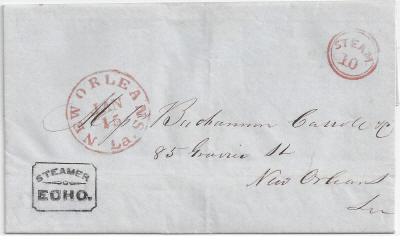 STEAM
10
NEW ORLEANS La.
JAN
15
Messrs Buchannon Carroll & Co
85 Gravier St
New Orleans
La
STEAMER
ECHO.